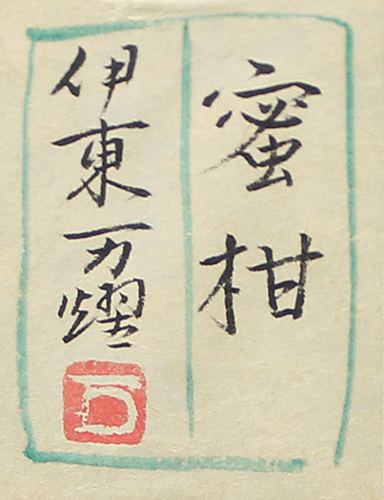 蜜柑
伊東万燿